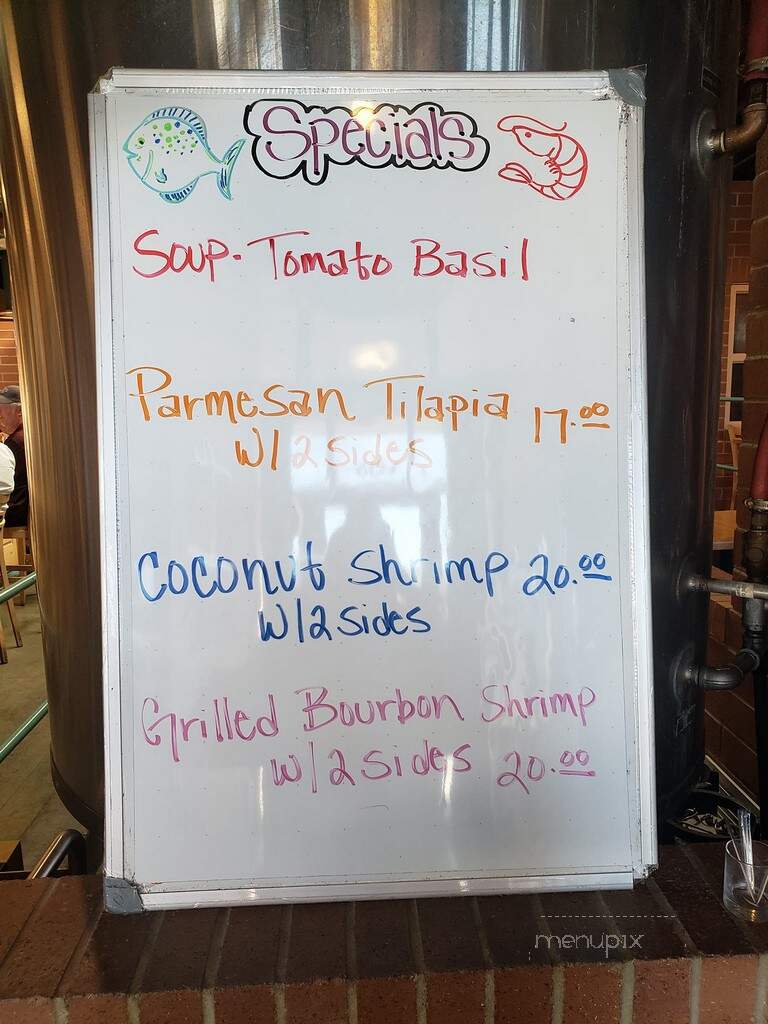 Specials
Soup. Tomato Basil
Parmesan Tilapia 17.00
W/ 2 sides
Coconut Shrimp 20.00
W/ 2 sides
Grilled Bourbon Shrimp
W/ 2 sides 20.00
menupix